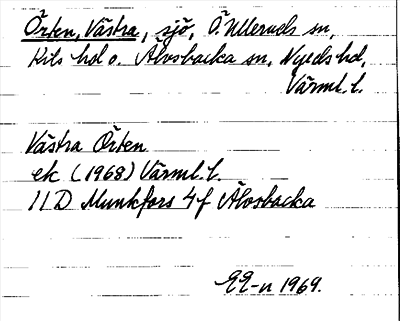 Örten, Västra, sjö, Ö. Ulleruds sn,
Kils hd o. Älvsbacka sn, Nyeds hd,
Värml. l.
Västra Örten
ek (1968) Värml. l.
11 D Munkfors 4 f Älvsbacka
EE-n 1969.